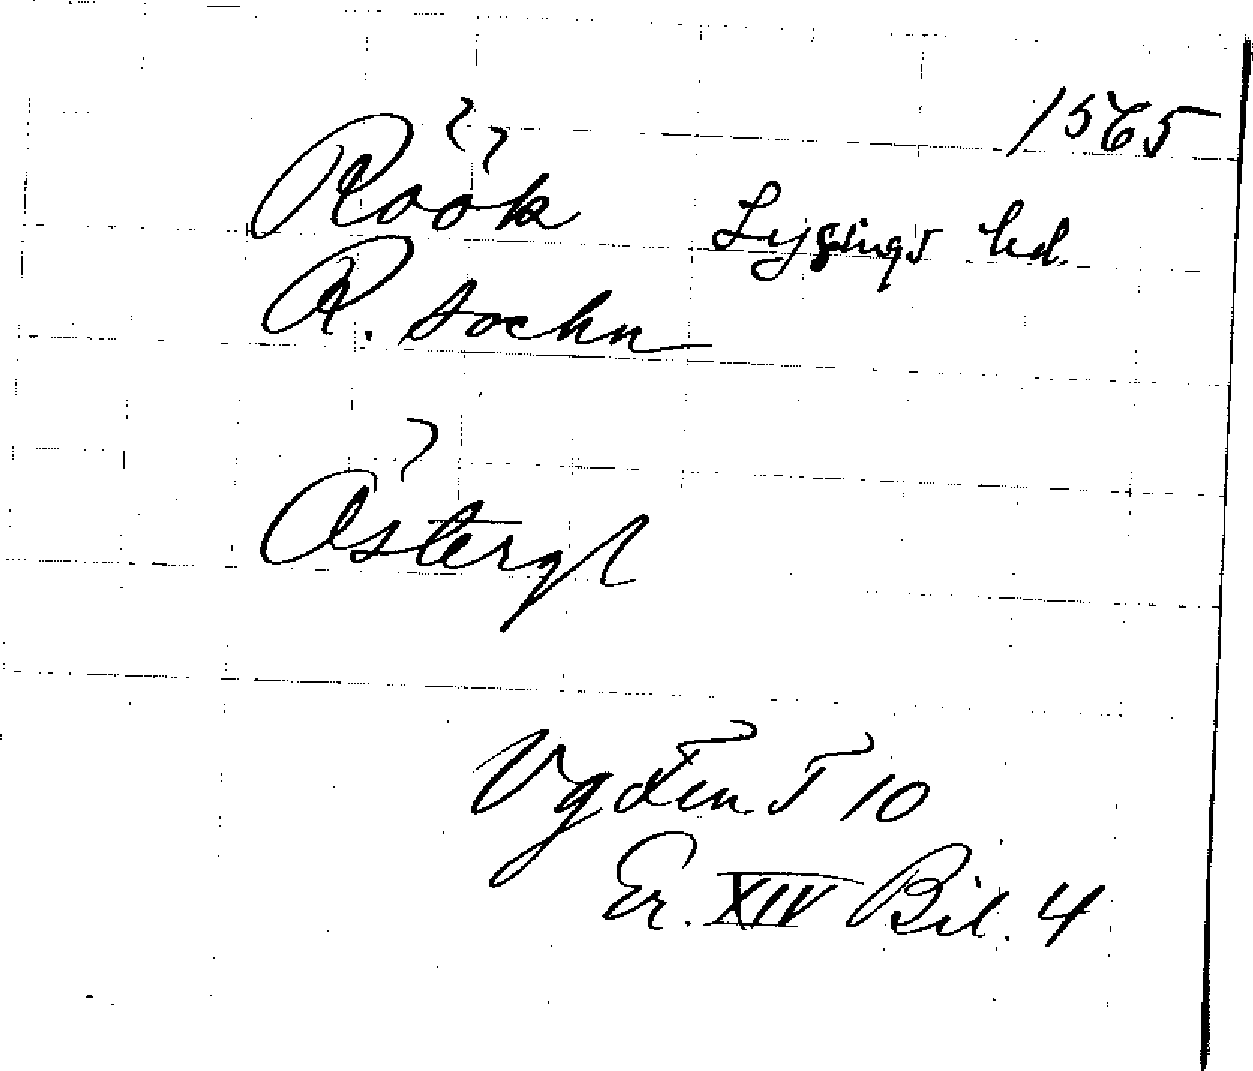 1565
Röök Lysings hd.
R. sochn
Östergl
10
Er. XIV Bil. 4